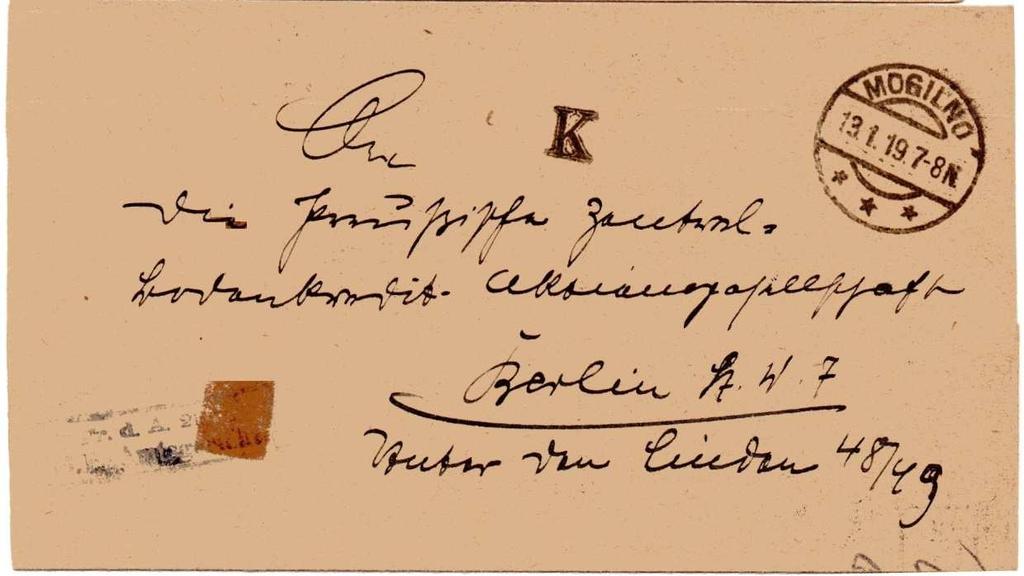 An
K
MOGILNO
13.1.19.7-8N.
die Preußische Zentral-
Bodenkredit- Aktiengesellschaft
Berlin N. W. 7
Unter den Linden 48/49
d. A. 21